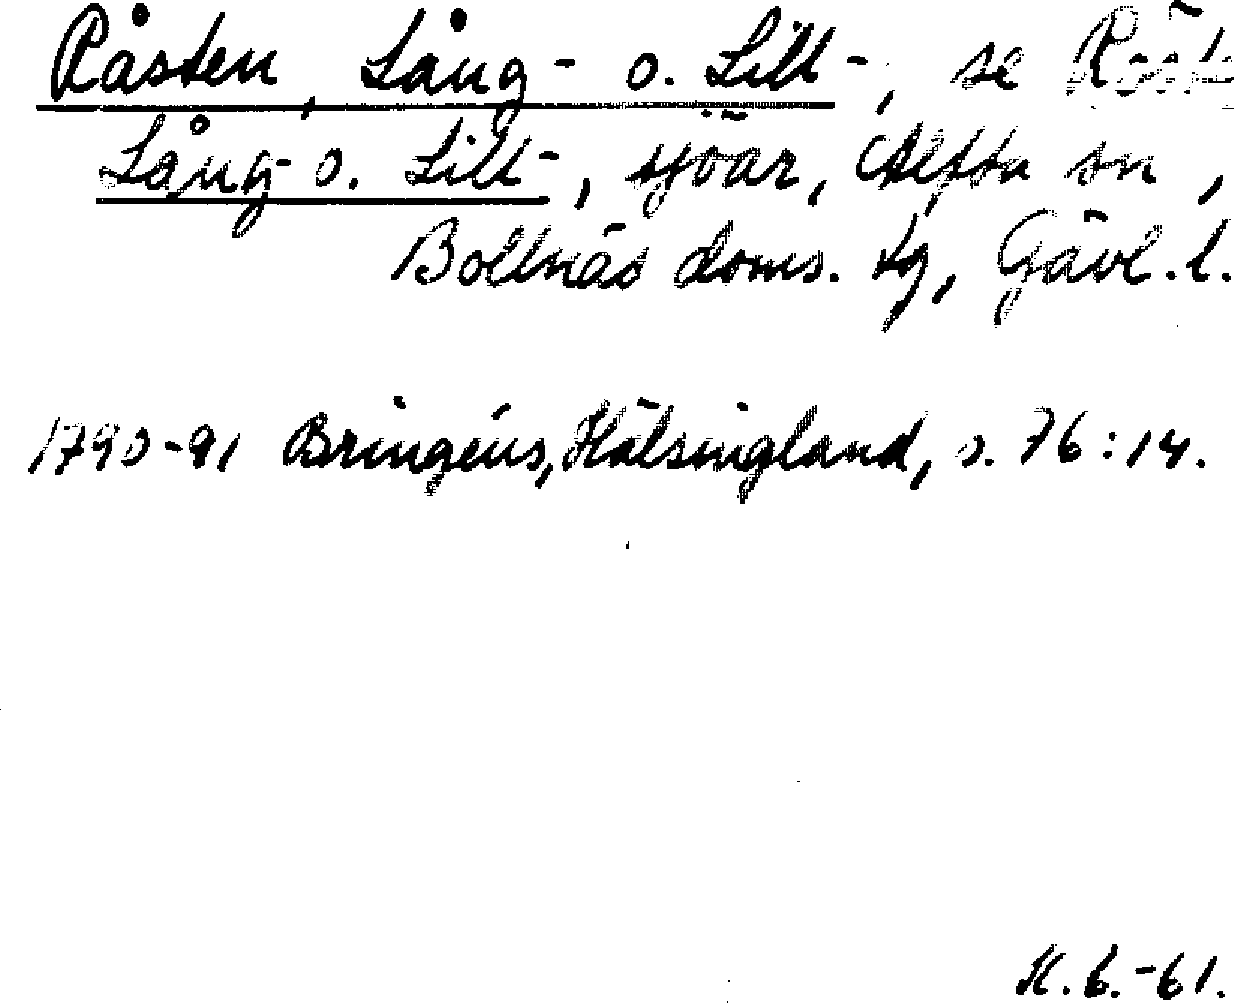 Råsten, Lång- o. Lill-, se
Lång- o. Lill-, sjöar, Alfta sn,
Bollnäs doms. tg, Gävl. l.
1790-91 Bringéus, Hälsingland, s. 76:14.
K.B.-61.